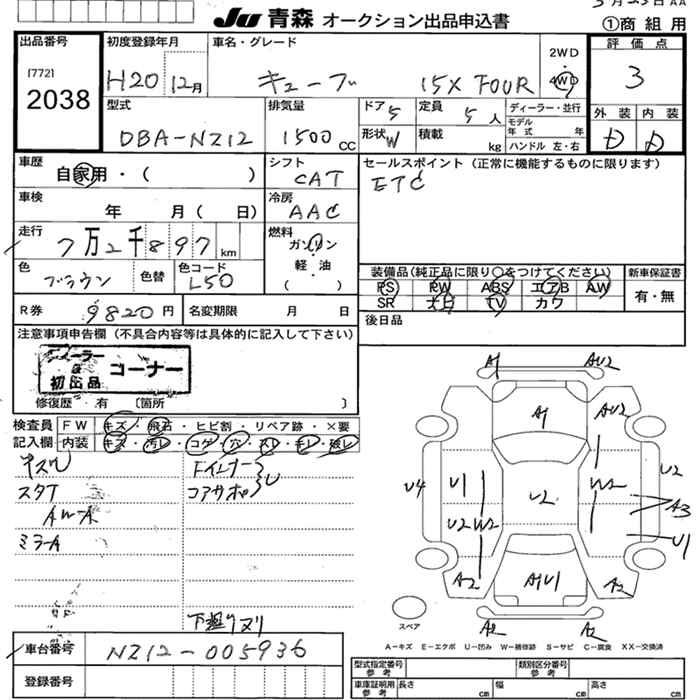 JU 青森 オークション出品申込書
①商 組 用
出品番号
[772]
2038
初度登録年月
H20 12月
車名・グレード
キューブ 15X FOUR
2WD
・
4WD
評価点
3
外装 内装
D D
型式
DBA-NZ12
排気量
1500 cc
ドア 5
定員 5 人
形状 W
積載 kg
ディーラー・並行
モデル年式 年
ハンドル 左・右
車歴
自家用・( )
シフト
CAT
セールスポイント(正常に機能するものに限ります)
ETC
車検
年 月( 日)
冷房
AAC
走行
7万2千897 km
燃料
ガソリン
軽・油
( )
色
ブラウン
色替
色コード
L50
装備品(純正品に限り○をつけてください)
PS PW ABS エアB AW
SR 本日 TV カワ
新車保証書
有・無
R券 9820 円
名変期限 月 日
後日品
注意事項申告欄(不具合内容等は具体的に記入して下さい)
ディーラー
初出品
コーナー
修復歴・有 〔箇所 〕
検査員 FW キズ・飛石・ヒビ割・リペア跡・×要
記入欄 内装 キズ・汚レ・コゲ・穴・スレ・キレ・破レ
スタT
AW-A
ミラーA
コアサポ
下廻りヌリ
A1 AU2
A1 AU2
U4 U1 U2 W2 U2
U2 W2 A3
U1
A2 AU1 A2
A2 A2
スペア
A－キズ E－エクボ U－凹み W－補修跡 S－サビ C－腐食 XX－交換済
車台番号
NZ12-005936
登録番号
型式指定番号
参考
類別区分番号
参考
車庫証明用
参考
長さ cm 幅 cm 高さ cm